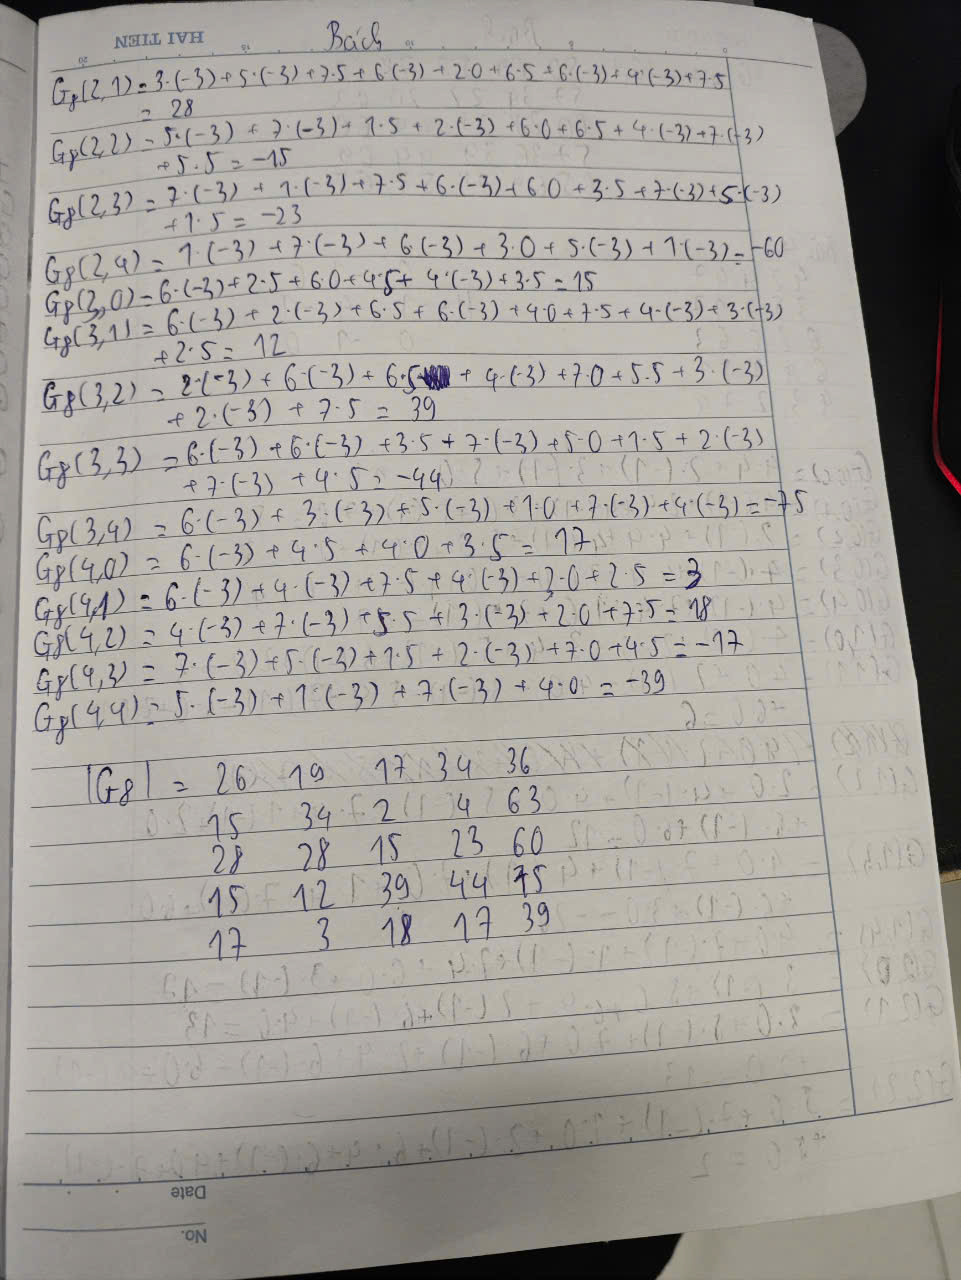 HAI TIEN
Bách
G8(2,1) = 3·(-3)+5·(-3)+7·5+6·(-3)+2·0+6·5+6·(-3)+4·(-3)+7·5
= 28
G8(2,2) = 5·(-3)+7·(-3)+1·5+2·(-3)+6·0+6·5+4·(-3)+7·(-3)
+5·5 = -15
G8(2,3) = 7·(-3)+1·(-3)+7·5+6·(-3)+6·0+3·5+7·(-3)+5·(-3)
+1·5 = -23
G8(2,4) = 1·(-3)+7·(-3)+6·(-3)+3·0+5·(-3)+1·(-3) = -60
G8(3,0) = 6·(-3)+2·5+6·0+4·5+4·(-3)+3·5 = 15
G8(3,1) = 6·(-3)+2·(-3)+6·5+6·(-3)+4·0+7·5+4·(-3)+3·(-3)
+2·5 = 12
G8(3,2) = 2·(-3)+6·(-3)+6·5+4·(-3)+7·0+5·5+3·(-3)
+2·(-3)+7·5 = 39
G8(3,3) = 6·(-3)+6·(-3)+3·5+7·(-3)+5·0+1·5+2·(-3)
+7·(-3)+4·5 = -44
G8(3,4) = 6·(-3)+3·(-3)+5·(-3)+1·0+7·(-3)+4·(-3) = -75
G8(4,0) = 6·(-3)+4·5+4·0+3·5 = 17
G8(4,1) = 6·(-3)+4·(-3)+7·5+4·(-3)+3·0+2·5 = 3
G8(4,2) = 4·(-3)+7·(-3)+5·5+3·(-3)+2·0+7·5 = 18
G8(4,3) = 7·(-3)+5·(-3)+1·5+2·(-3)+7·0+4·5 = -17
G8(4,4) = 5·(-3)+1·(-3)+7·(-3)+4·0 = -39
|G8| = 26 19 17 34 36
15 34 2 4 63
28 28 15 23 60
15 12 39 44 75
17 3 18 17 39
Date
No.